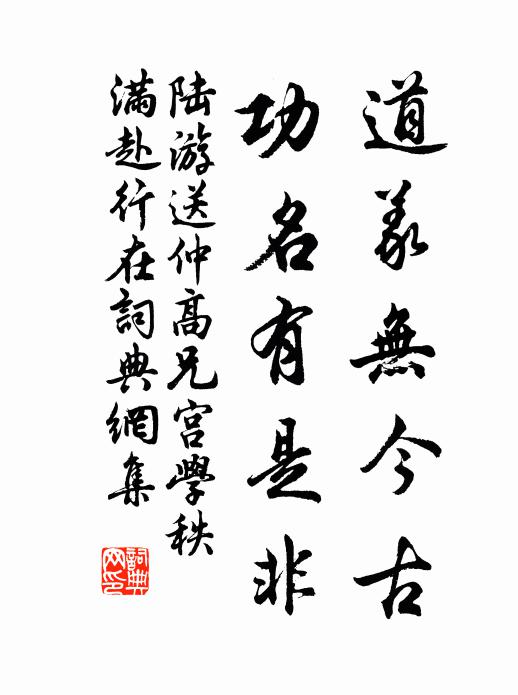 道義無今古
功名有是非
陆游送仲高兄宫學秩
滿赴行在詞典網集
詞典网印